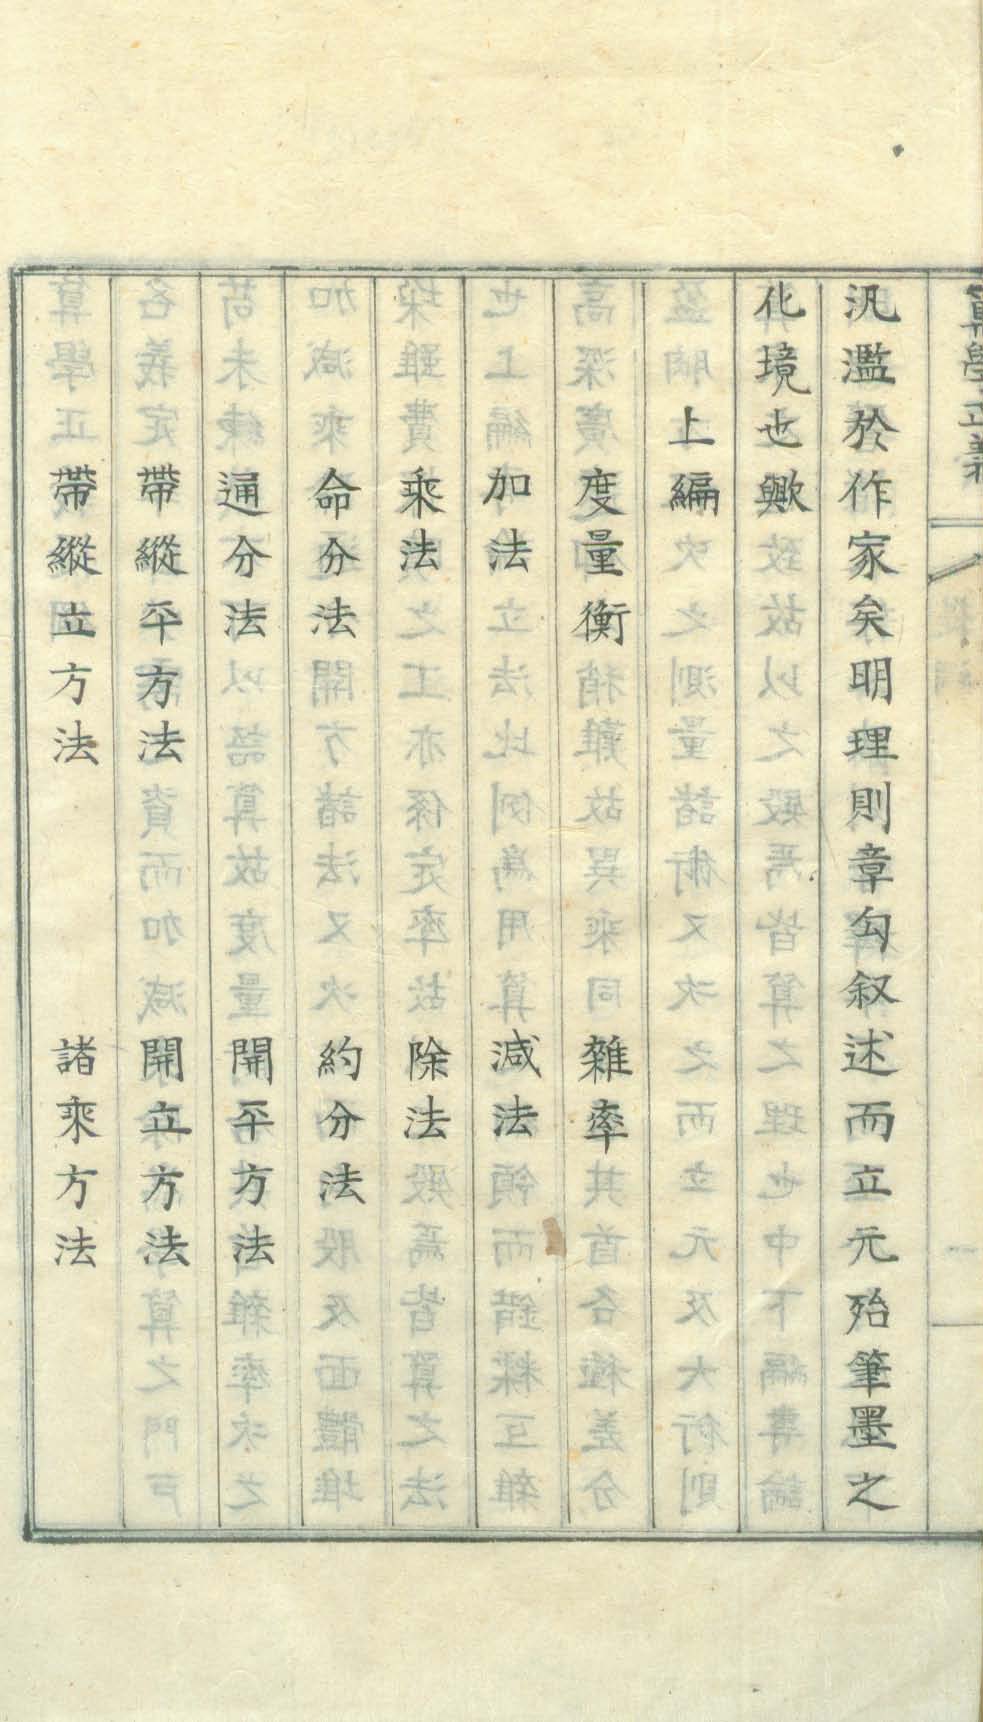 算學正義
汎濫於作家矣明理則章句叙述而立元殆筆墨之
化境也歟
上編
度量衡　雜率
加法　減法
乘法　除法
命分法　約分法
通分法　開平方法
帶縱平方法　開立方法
帶縱立方法　諸乘方法